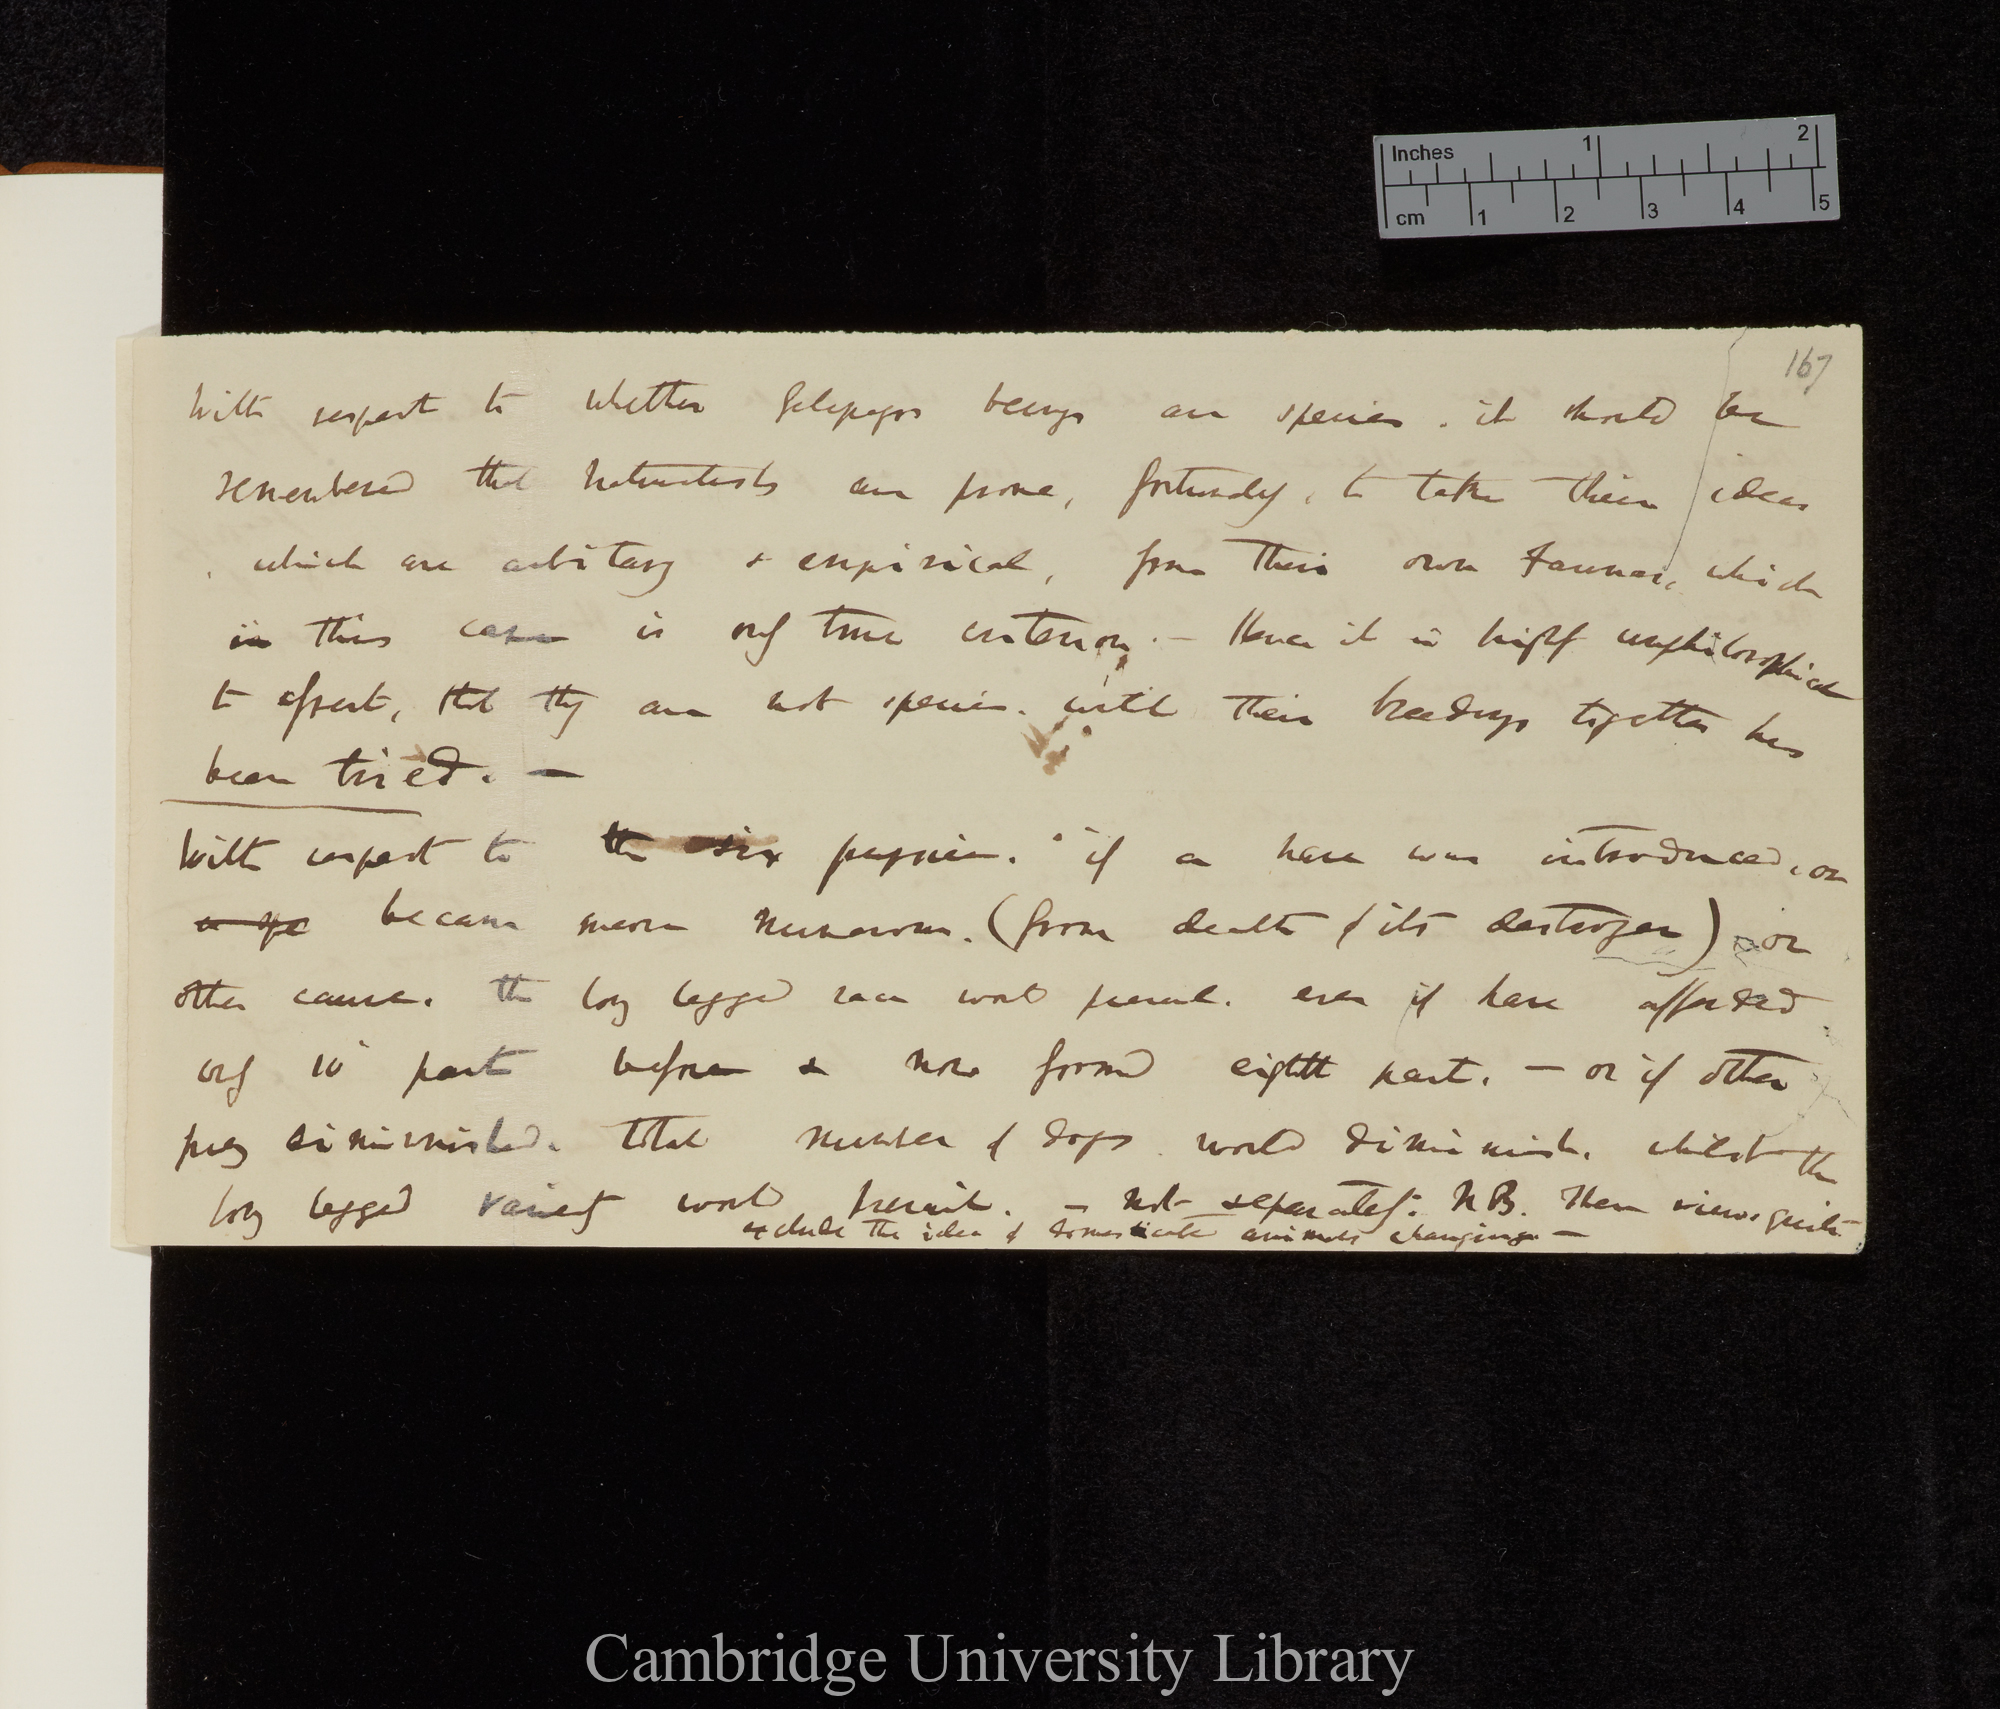 Inches 1 2
cm 1 2 3 4 5
167
With respect to whether Galapagos beings are species. it should be
remembered that Naturalists are prone, fortunately, to take their ideas
which are arbitary & empirical, from their own Faunas, which
in this case is only true criterion. — Hence it is highly unphilosophical
to assert, that they are not species. until their breedings together has
been tried. —
With respect to the six if a hare was introduced, or
a spe became more numerous. (from death of its destroyer) or
other cause. the long legged race would prevail. even if hare afforded
only 10 part before & now formed eighth part. — or if other
prey diminished. total number of dogs would diminish. whilst the
long legged variety would prevail. — not separately. NB. These views quite
exclude the idea of domesticate animals changing. —
Cambridge University Library